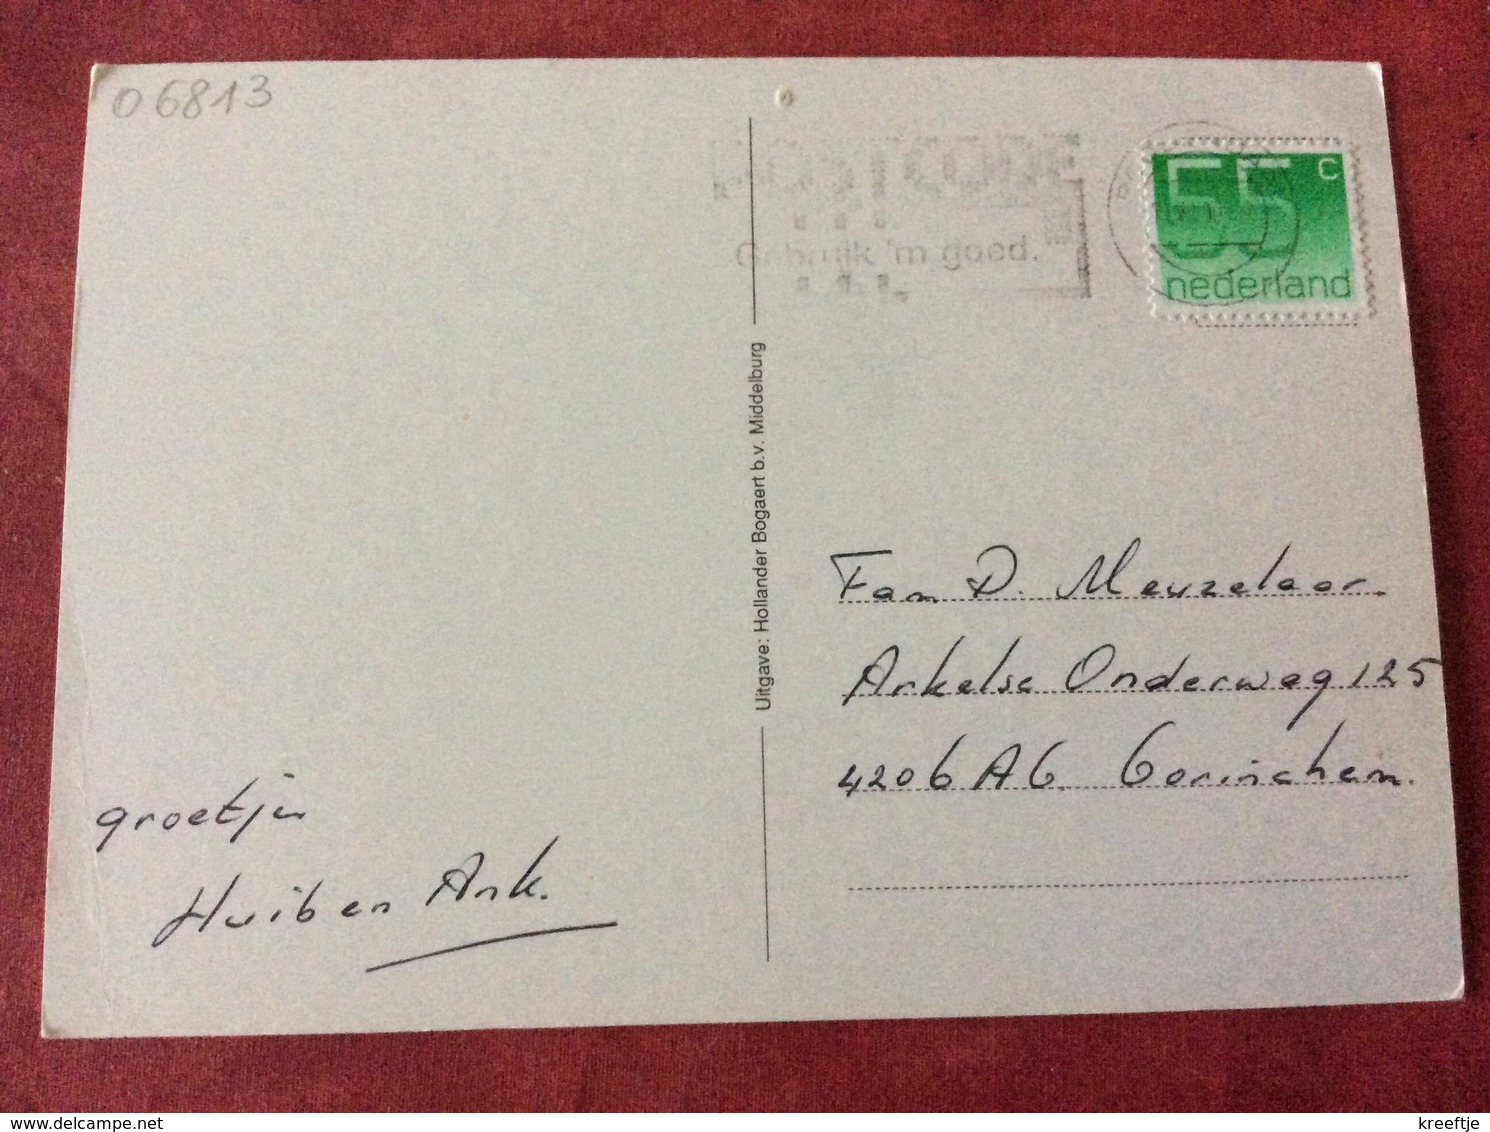 06813
POSTCODE
Gebruik 'm goed.
55 c
nederland
Uitgave: Hollander Bogaert b.v. Middelburg
Fam D. Meuzelaar.
Arkelse Onderweg 125
4206 AG Gorinchem.
groetjes
Huib en Ank.
www.delcampe.net
kreeftje